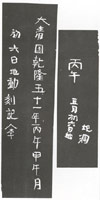 丙午
五月初六日
地洞
大清国乾隆五十一年丙午甲午月
初六日地動刻